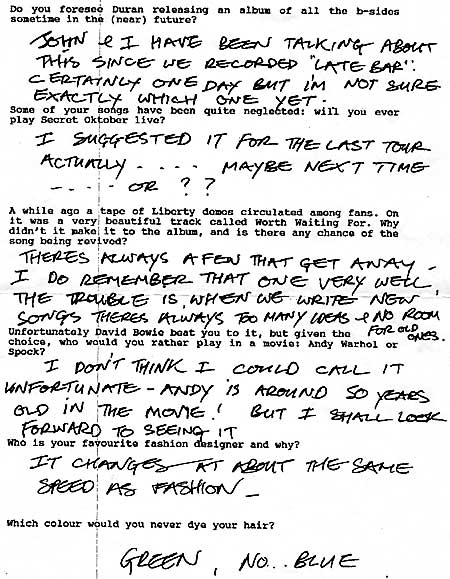 Do you foresee Duran releasing an album of all the b-sides
sometime in the (near) future?
JOHN & I HAVE BEEN TALKING ABOUT
THIS SINCE WE RECORDED "LATE BAR".
CERTAINLY ONE DAY BUT I'M NOT SURE
EXACTLY WHICH ONE YET.
Some of your songs have been quite neglected: will you ever
play Secret Oktober live?
I SUGGESTED IT FOR THE LAST TOUR
ACTUALLY - - - - MAYBE NEXT TIME
- - - - OR ? ?
A while ago a tape of Liberty demos circulated among fans. On
it was a very beautiful track called Worth Waiting For. Why
didn't it make it to the album, and is there any chance of the
song being revived?
THERES ALWAYS A FEW THAT GET AWAY -
I DO REMEMBER THAT ONE VERY WELL.
THE TROUBLE IS, WHEN WE WRITE NEW
SONGS THERES ALWAYS TOO MANY IDEAS & NO ROOM
FOR OLD ONES.
Unfortunately David Bowie beat you to it, but given the
choice, who would you rather play in a movie: Andy Warhol or
Spock?
I DON'T THINK I COULD CALL IT
UNFORTUNATE - ANDY IS AROUND 50 YEARS
OLD IN THE MOVIE! BUT I SHALL LOOK
FORWARD TO SEEING IT
Who is your favourite fashion designer and why?
IT CHANGES AT ABOUT THE SAME
SPEED AS FASHION -
Which colour would you never dye your hair?
GREEN, NO.. BLUE